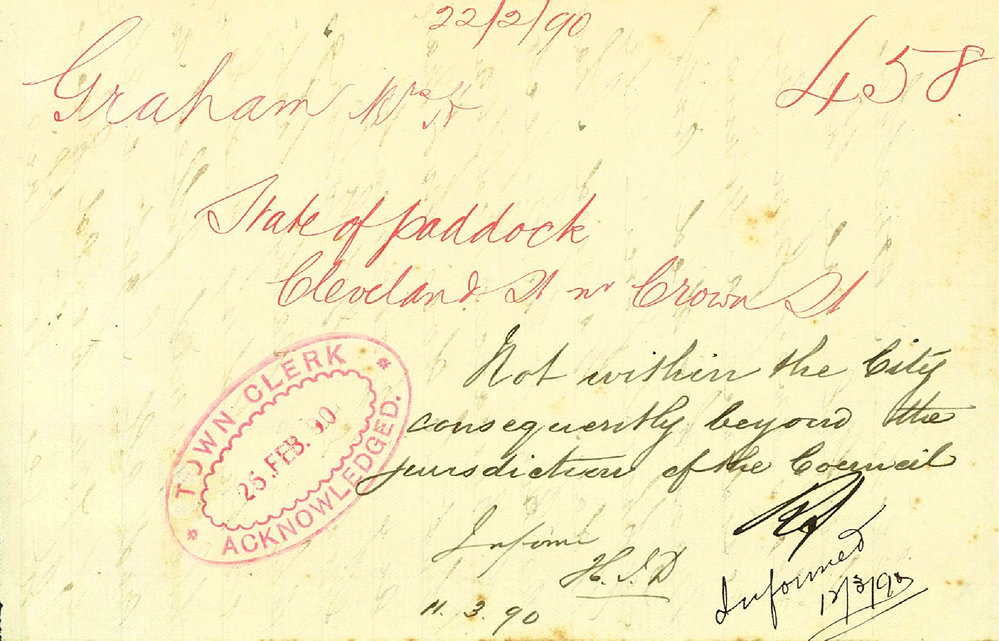 22/2/90
458
Graham Mrs
State of paddock
Cleveland St nr Crown St
TOWN CLERK
25.FEB.90
ACKNOWLEDGED.
Not within the City
consequently beyond the
jurisdiction of the Council
Inform
H.J.D
11.3.90
Informed
12/3/90